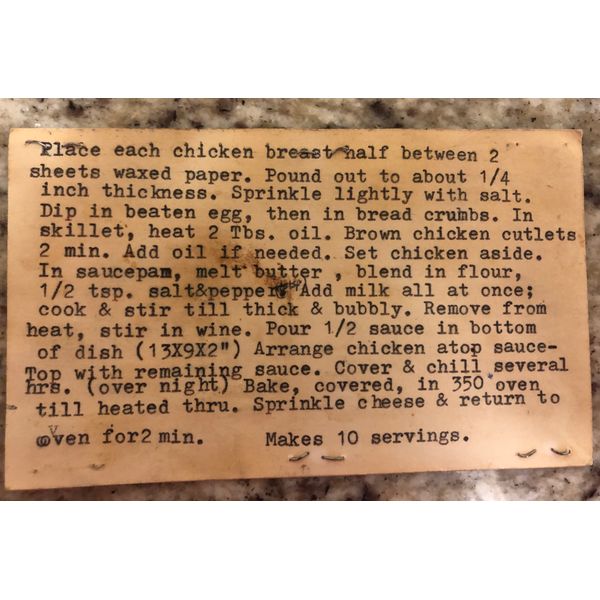 Place each chicken breast half between 2
sheets waxed paper. Pound out to about 1/4
inch thickness. Sprinkle lightly with salt.
Dip in beaten egg, then in bread crumbs. In
skillet, heat 2 Tbs. oil. Brown chicken cutlets
2 min. Add oil if needed. Set chicken aside.
In saucepam, melt butter , blend in flour,
1/2 tsp. salt&pepper. Add milk all at once;
cook & stir till thick & bubbly. Remove from
heat, stir in wine. Pour 1/2 sauce in bottom
of dish (13X9X2") Arrange chicken atop sauce-
Top with remaining sauce. Cover & chill several
hrs. (over night) Bake, covered, in 350° oven
till heated thru. Sprinkle cheese & return to
oven for2 min. Makes 10 servings.